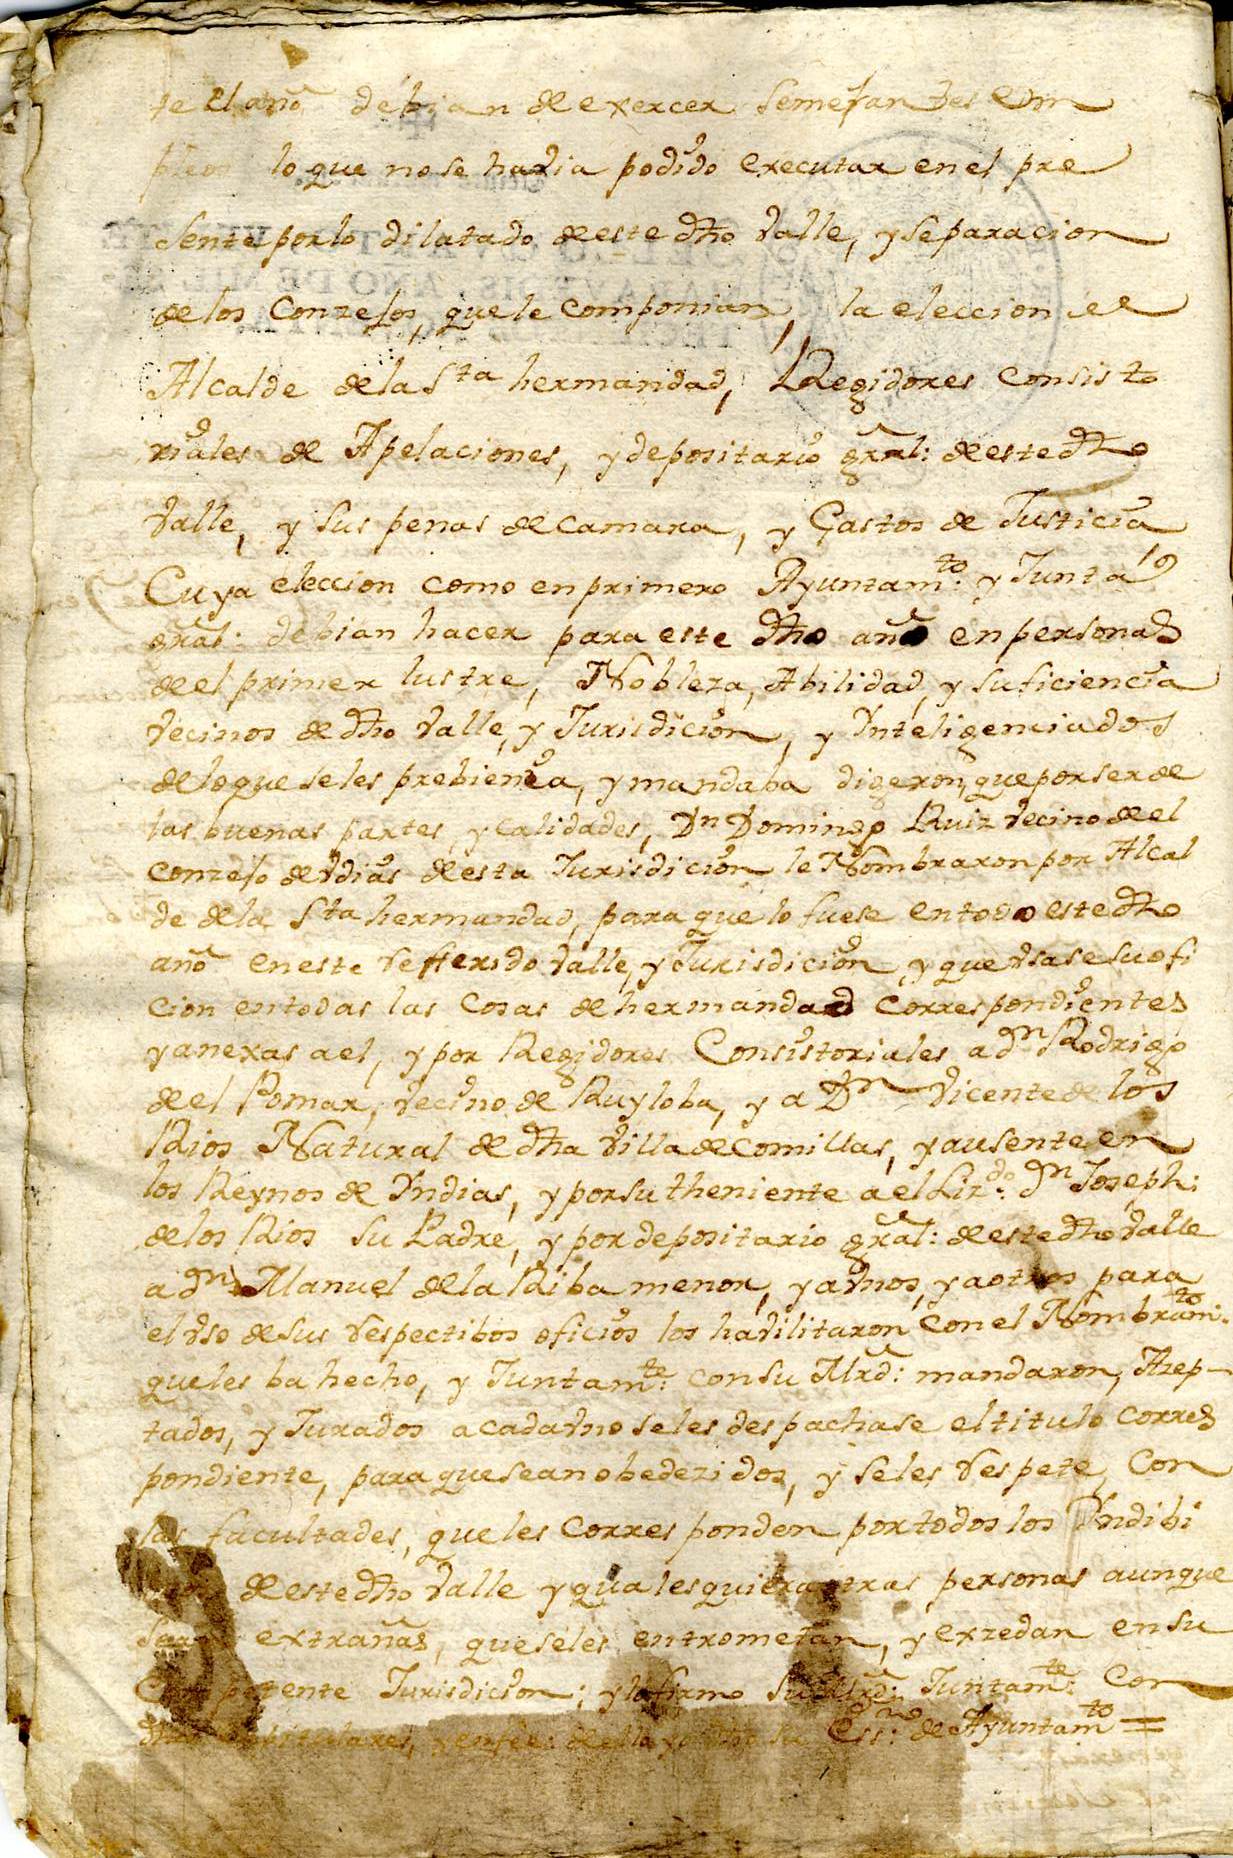 te el año debian de exercer semejantes Em
pleos lo que no se havia podido executar en el pre
sente por lo dilatado de este dho valle, y separacion
de los Conzejos, que le componian, la eleccion de
Alcalde de la Sta hermandad, Regidores Consisto
riales de Apelaciones, y depositario gral: de este dho
valle, y sus penas de camara, y Gastos de Justicia
Cuya eleccion como en primero Ayuntamto: y Junta
gral: debian hacer para este dho año en personas
de el primer lustre, Nobleza, Abilidad, y suficiencia
vecinos de dho valle, y Jurisdicion, y Ynteligenciados
de lo que se les prebiene, y mandaba digeron, que por ser de
las buenas partes, y calidades, Dn Domingo Ruiz vecino de el
conzejo de Vdias de esta Jurisdicion le Nombraron por Alcal
de de la Sta hermandad, para que lo fuese en todo este dho
año en este refferido valle, y Jurisdicion, y que vsase su ofi
cion en todas las Cosas de hermandad Correspondientes
y anexas a el, y por Regidores Consistoriales a dn Rodrigo
de el Pomar, vecino de Ruyloba, y a Dn Vicente de los
Rios Natural de dha villa de Comillas, y ausente en
los Reynos de Yndias, y por su theniente a el Lizdo: dn Joseph:
de los Rios su Padre, y por depositario gral: de este dho valle
a dn Manuel de la Riba menor, y a vnos, y a otros para
el vso de sus respectibos oficios los havilitaron con el Nombramto:
que les ba hecho, y Juntamte: con su Mrd: mandaron, Azep-
tados, y Jurados a cada vno se les despachase el titulo corres
pondiente, para que sean obedezidos, y se les respete, Con
las facultades, que les corresponden por todos los Yndibi
de este dho valle y qualesquiera otras personas aunque
sean extrañas, que se les entrometan, y exzedan en su
Competente Jurisdicion; y lo firmo su Mrd: Juntamte: Con
dhos Capitulares, y en fee: de ello yo dho su Essno: de Ayuntamto =